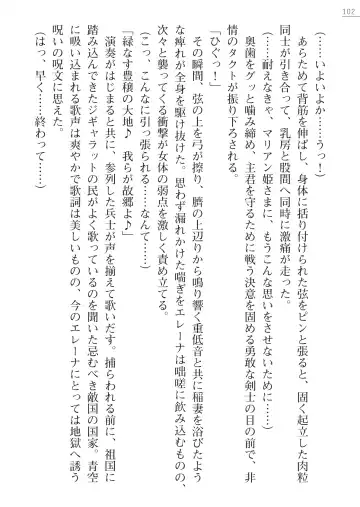 102
（……いよいよか……うっ！）
あらためて背筋を伸ばし、身体に括り付けられた弦をピンと張ると、固く起立した肉粒
同士が引き合って、乳房と股間へ同時に激痛が走った。
（……耐えなきゃ、マリアン姫さまに、もうこんな思いをさせないために――）
奥歯をグッと噛み締め、主君を守るために戦う決意を固める勇敢な剣士の目の前で、非
情のタクトが振り下ろされる。
「ひぐっ！」
その瞬間、弦の上を弓が擦り、臍の上辺りから鳴り響く重低音と共に稲妻を浴びたよう
な痺れが全身を駆け抜けた。思わず漏れかけた喘ぎをエレーナは咄嗟に飲み込むものの、
次々と襲ってくる衝撃が女体の弱点を激しく責め立てる。
（こっ、こんなに引っ張られる……なんて……）
「緑なす豊穣の大地♪　我らが故郷よ♪」
演奏がはじまると共に、参列した兵士が声を揃えて歌いだす。捕らわれる前に、祖国に
踏み込んできたジギャラットの民がよく歌っているのを聞いた忌むべき敵国の国家。青空
に吸い込まれる歌声は爽やかで歌詞は美しいものの、今のエレーナにとっては地獄へ誘う
呪いの呪文に思えた。
（はっ、早く……終わって……）